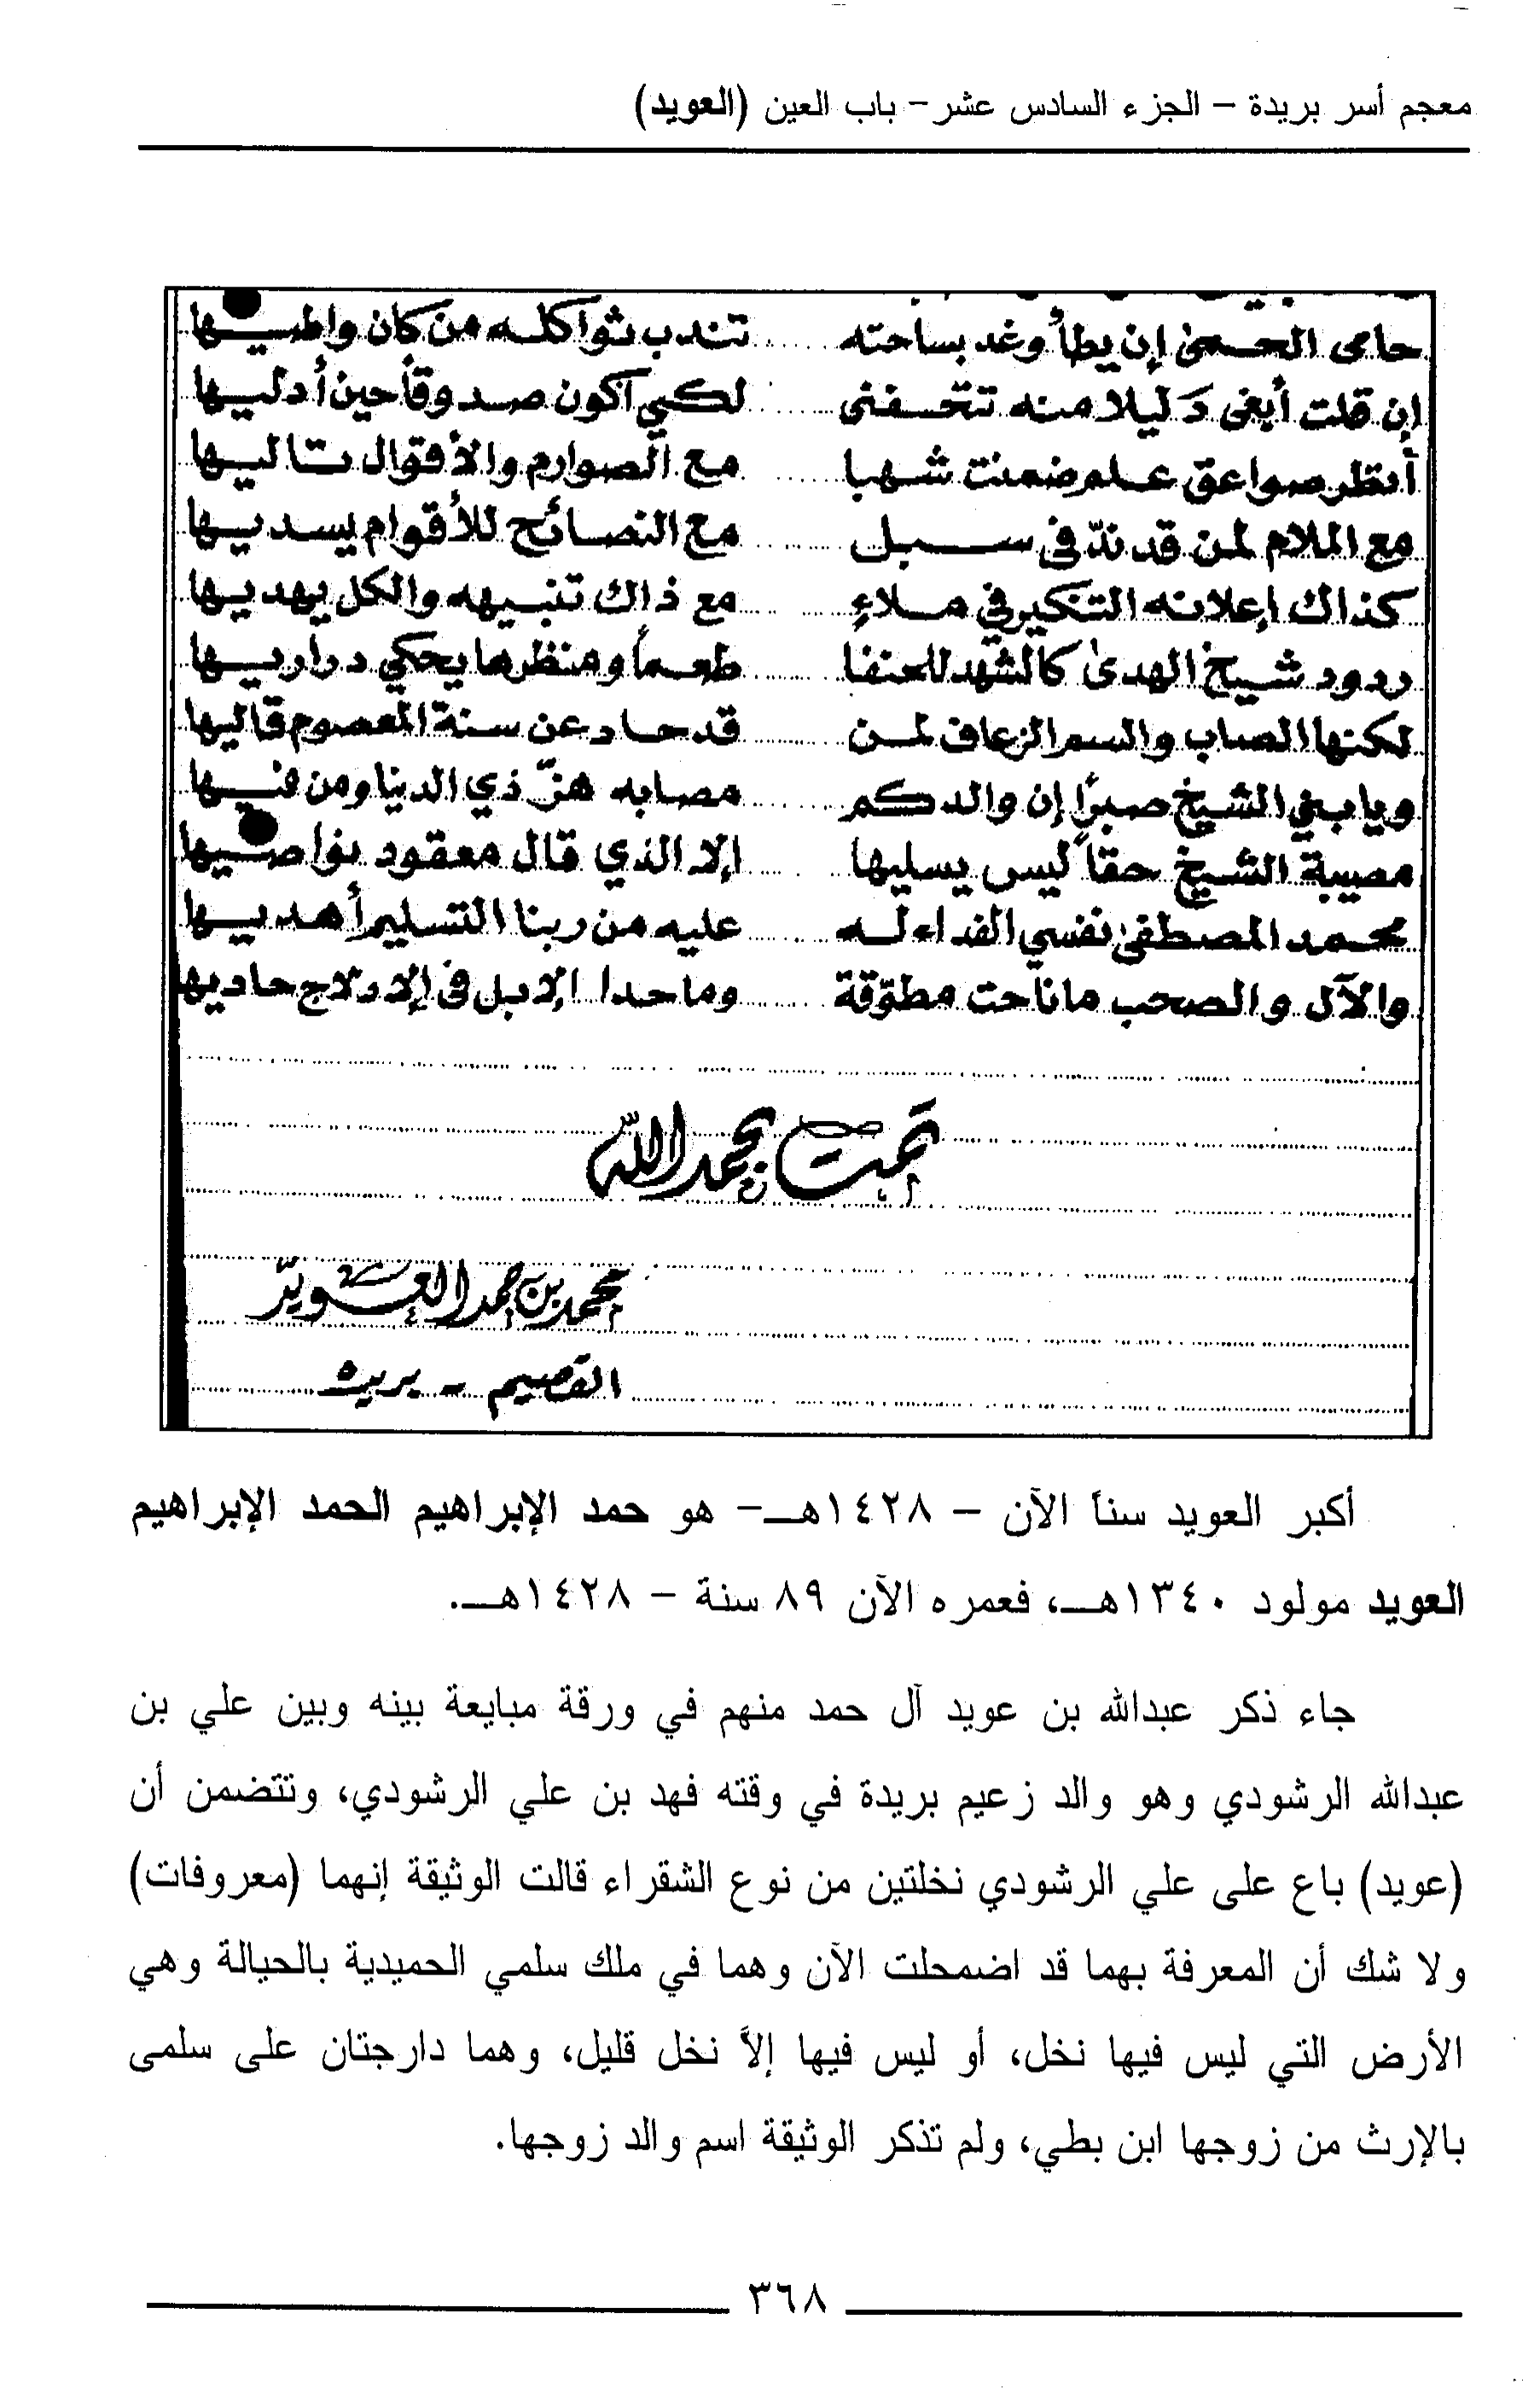 معجم أسر بريدة – الجزء السادس عشر – باب العين (العويد)
حامى الحمى إن يطأ وغد بساحته ..... تندب ثواكله من كان واطيها
إن قلت أبغى دليلا منه تتحفنى ..... لكي أكون صدوقاً حين أدليها
أنظر صواعق علم ضمنت شهبا ..... مع الصوارم والأقوال تاليها
مع الملام لمن قد ندّ فى سبل ..... مع النصائح للأقوام يسديها
كذاك إعلانه التنكير في ملاءٍ ..... مع ذاك تنبيهه والكل يهديها
ردود شيخ الهدى كالشهد للحنفا ..... طعماً ومنظرها يحكي دراريها
لكنها الصاب والسم الزعاف لمن ..... قد حاد عن سنة المعصوم قاليها
ويا بني الشيخ صبراً إن والدكم ..... مصابه هزّ ذي الدنيا ومن فيها
مصيبة الشيخ حقاً ليس يسليها ..... إلا الذي قال معقود بنواصيها
محمد المصطفى نفسي الفداء له ..... عليه من ربنا التسليم أهديها
والآل والصحب ما ناحت مطوّقة ..... وما حدا الإبل فى إلادلاج حاديها
تمت بحمد الله
محمد بن حمد العويّد
القصيم - بريدة
أكبر العويد سناً الآن – ١٤٢٨هـ– هو حمد الإبراهيم الحمد الإبراهيم
العويد مولود ١٣٤٠هـ، فعمره الآن ٨٩ سنة – ١٤٢٨هـ.
جاء ذكر عبدالله بن عويد آل حمد منهم في ورقة مبايعة بينه وبين علي بن
عبدالله الرشودي وهو والد زعيم بريدة في وقته فهد بن علي الرشودي، وتتضمن أن
(عويد) باع على علي الرشودي نخلتين من نوع الشقراء قالت الوثيقة إنهما (معروفات)
ولا شك أن المعرفة بهما قد اضمحلت الآن وهما في ملك سلمي الحميدية بالحيالة وهي
الأرض التي ليس فيها نخل، أو ليس فيها إلاَّ نخل قليل، وهما دارجتان على سلمى
بالإرث من زوجها ابن بطي، ولم تذكر الوثيقة اسم والد زوجها.
٣٦٨